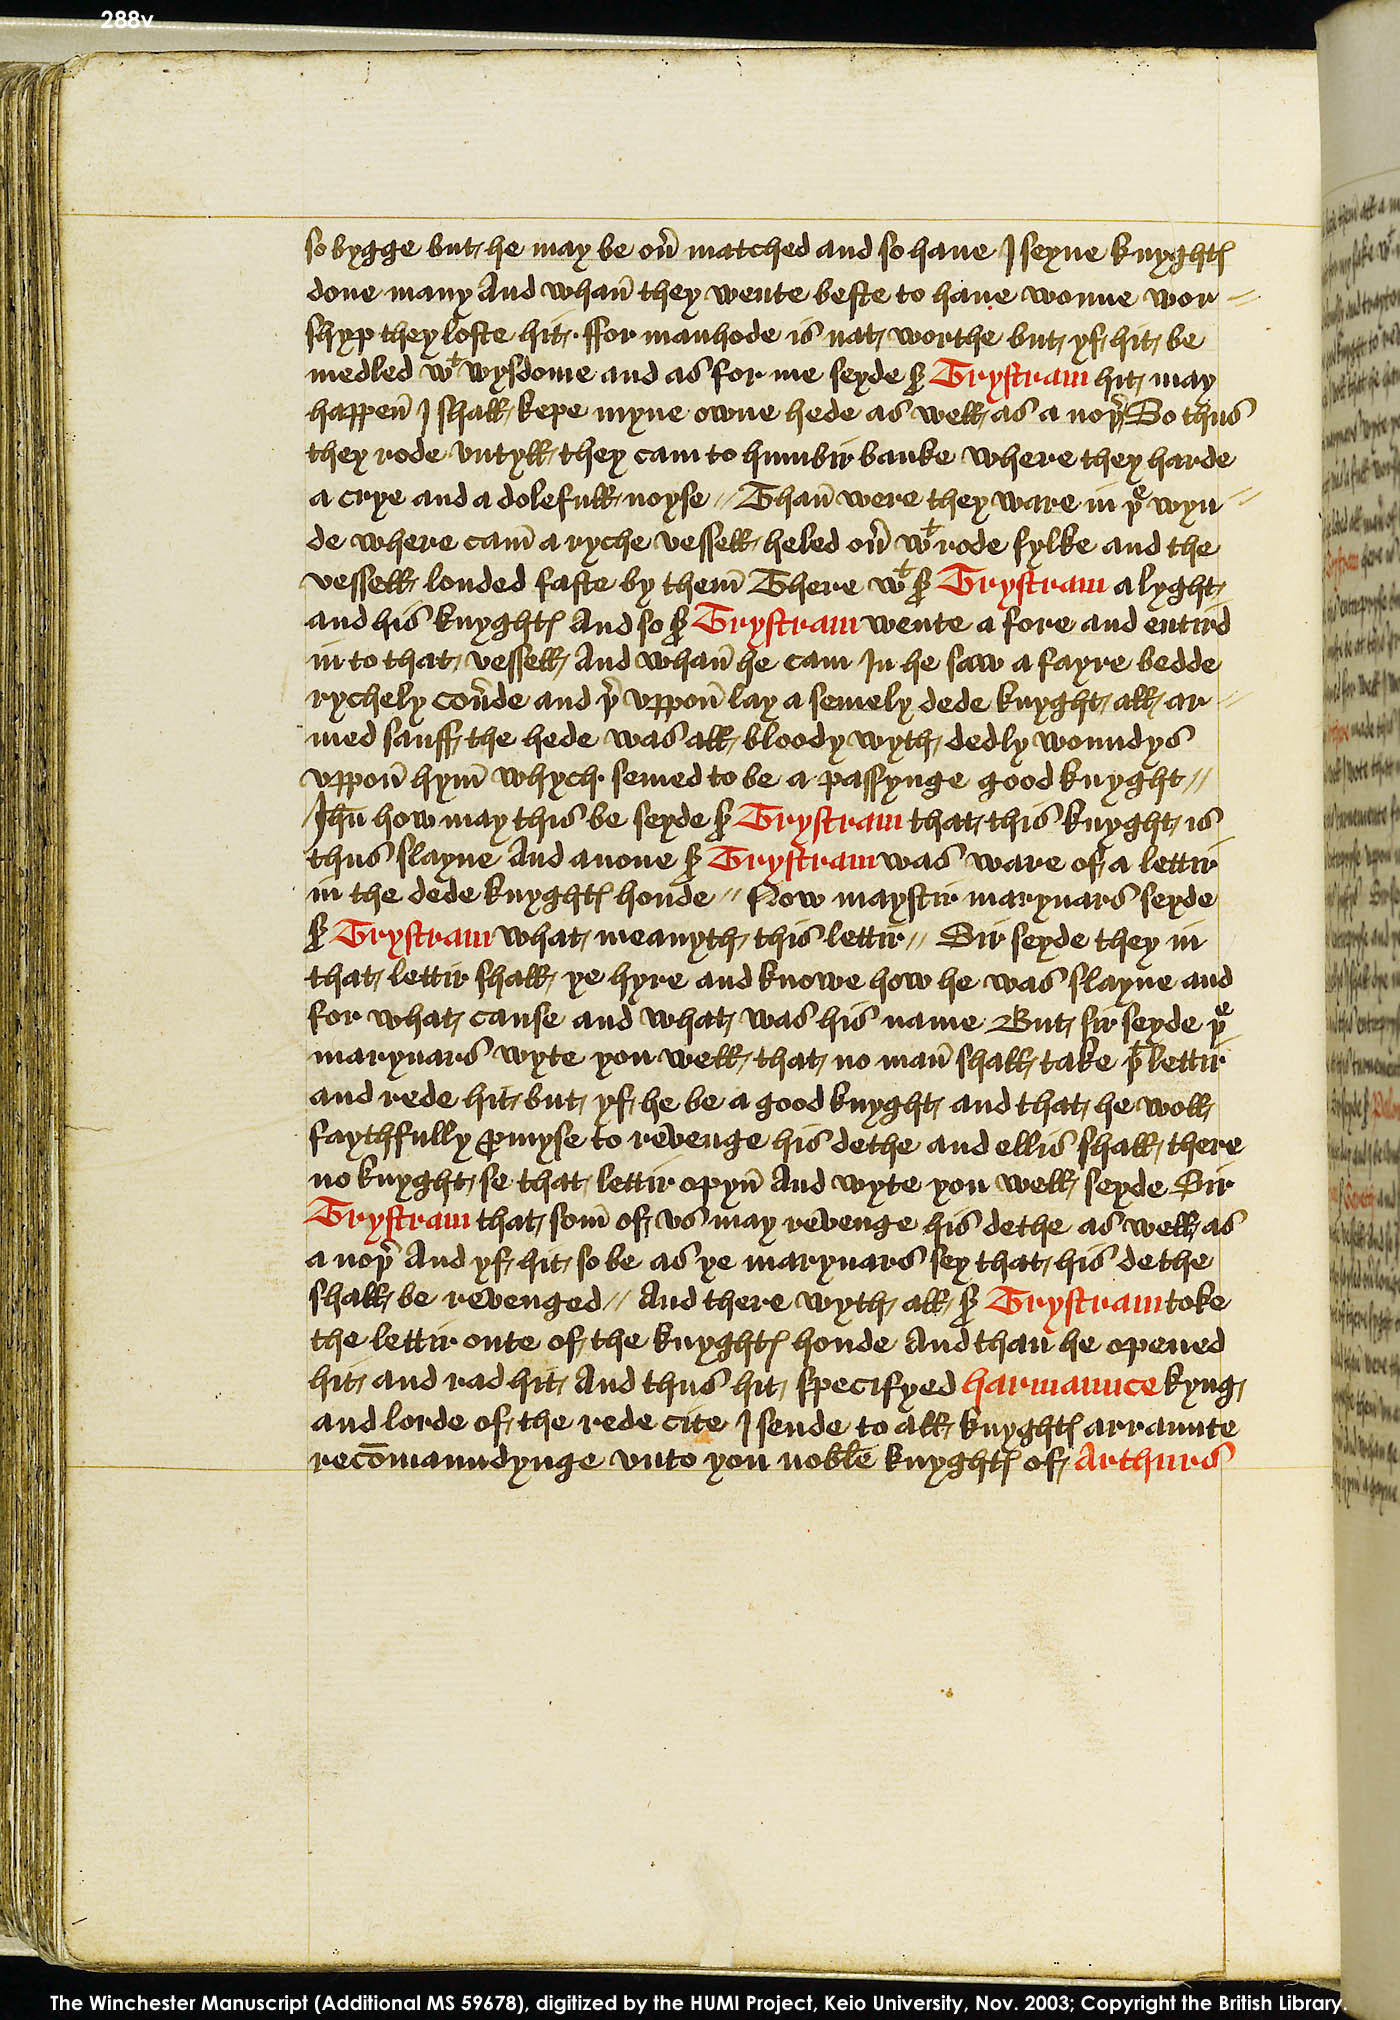 288v
so bygge but he may be ou͛ matched and so haue I seyne knyghtꝭ
done many And whan̄ they wente beste to haue wonne wor⸗
shyp they loste hit · ffor manhode is nat worthe but yf hit be
medled wᵗ wysdome and as for me seyde ẜ Trystram hit may
happen̄ I shall kepe myne owne hede as well as a noþ͛ So thus
they rode vntyll they cam to humbir banke where they harde
a crye and a dolefull noyse // Than̄ were they ware in þᵉ wyn⸗
de where cam̄ a ryche vessell heled ou͛ wᵗ rede sylke and the
vessell londed faste by them̄ There wᵗ ẜ Trystram a lyght
and his knyghtꝭ And so ẜ Trystram wente a fore and entird
in to that vessell And whan̄ he cam In he saw a fayre bedde
rychely cou͛de and þ͛ vppon̄ lay a semely dede knyght all ar⸗
med sauff the hede was all bloody wyth dedly woundys
vppon̄ hym̄ whych semed to be a passynge good knyght //
Ihu̅ how may this be seyde ẜ Trystram that this knyght is
thus slayne And anone ẜ Trystram was ware of a lettir
in the dede knyghtꝭ honde // Now maystir marynars seyde
ẜ Trystram what meanyth this lettir // Sir seyde they in
that lettir shall ye hyre and knowe how he was slayne and
for what cause and what was his name But sir seyde þᵉ
marynars wyte you well that no man̄ shall take þᵗ lettir
and rede hit but yf he be a good knyght and that he woll
faythfully ꝓmyse to revenge his dethe and ellis shall there
no knyght se that lettir opyn̄ And wyte you well seyde Sir
Trystram that som̄ of vs may revenge his dethe as well as
a noþ͛ And yf hit so be as ye marynars sey that his dethe
shall be revenged // And there wyth all ẜ Trystram toke
the lettir oute of the knyghtꝭ honde And than̄ he opened
hit and rad hit And thus hit specifyed harmaunce kyng
and lorde of the rede cite I sende to all knyghtꝭ arraunte
reco̅maundynge vnto you noble knyghtꝭ of Arthurs
The Winchester Manuscript (Additional MS 59678), digitized by the HUMI Project, Keio University, Nov. 2003; Copyright the British Library.